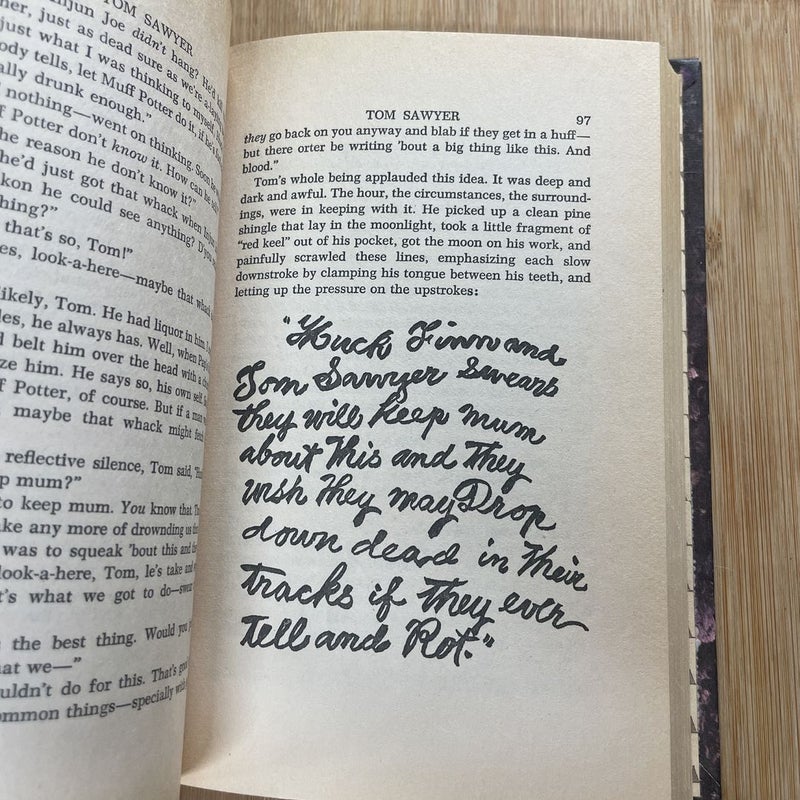 TOM SAWYER
Injun Joe didn't hang? He'd
her, just as dead sure as we're a-laying
just what I was thinking to myself
body tells, let Muff Potter do it, if he's
ally drunk enough."
nothing—went on thinking. Soon
Potter don't know it. How can he
he reason he don't know it?"
he'd just got that whack when Injun
kon he could see anything? D'you
hing?"
that's so, Tom!"
es, look-a-here—maybe that whack
likely, Tom. He had liquor in him. I
les, he always has. Well, when Pap's
d belt him over the head with a
ze him. He says so, his own self. So
f Potter, of course. But if a man
maybe that whack might fetch
reflective silence, Tom said,
p mum?"
to keep mum. You know that. T
ake any more of drownding us than
was to squeak 'bout this and they
look-a-here, Tom, le's take and
t's what we got to do—swear
s the best thing. Would you
hat we—"
uldn't do for this. That's good
ommon things—specially with
TOM SAWYER 97
they go back on you anyway and blab if they get in a huff—
but there orter be writing 'bout a big thing like this. And
blood."
Tom's whole being applauded this idea. It was deep and
dark and awful. The hour, the circumstances, the surround-
ings, were in keeping with it. He picked up a clean pine
shingle that lay in the moonlight, took a little fragment of
"red keel" out of his pocket, got the moon on his work, and
painfully scrawled these lines, emphasizing each slow
downstroke by clamping his tongue between his teeth, and
letting up the pressure on the upstrokes:
"Huck Finn and
Tom Sawyer swears
they will keep mum
about This and They
wish They may Drop
down dead in Their
tracks if They ever
Tell and Rot."